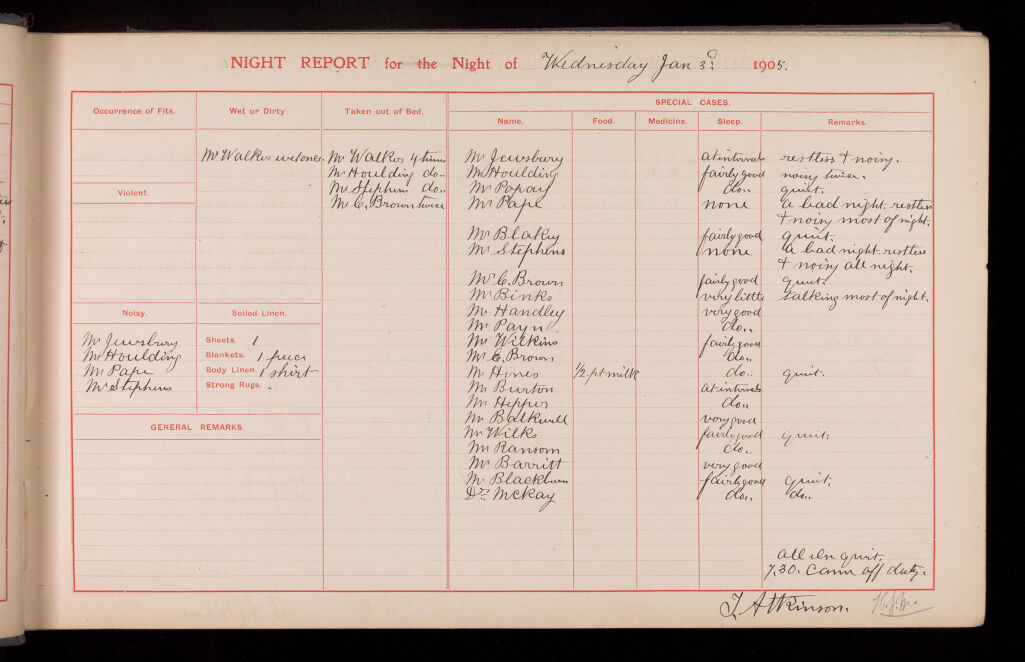 NIGHT REPORT for the Night of Wednesday Jan 3: 1905.
Occurrence of Fits.
Wet or Dirty.
Mr Walker wet once.
Taken out of Bed.
Mr Walker 4 times
Mr Houlding do..
Mr Stephens do..
Mr C. Brown twice
Violent.
Noisy.
Mr Jewsbury
Mr Houlding
Mr Pape
Mr Stephens
Soiled Linen.
Sheets. 1
Blankets. 1 piece
Body Linen. 1 shirt
Strong Rugs. -
GENERAL REMARKS.
SPECIAL CASES.
Name. Food. Medicine. Sleep. Remarks.
Mr Jewsbury at intervals restless & noisy.
Mr Houlding fairly good noisy twice.
Mr Popay do.. quiet.
Mr Pape none a bad night. restless
& noisy most of night.
Mr Blakey fairly good quiet.
Mr Stephens none a bad night. restless
& noisy all night.
Mr C. Brown fairly good quiet.
Mr Binks very little talking most of night.
Mr Handley very good
Mr Payn. do..
Mr Wilkins fairly good
Mr C. Brown do..
Mr Hines 1/2 pt milk do.. quiet.
Mr Burton at intervals
Mr Hipper do..
Mr Balkwell very good
Mr Wilks fairly good quiet.
Mr Ransom do..
Mr Barritt very good
Mr Blackburn fairly good quiet.
Dr. McKay do.. do..
all else quiet.
7.30. Came off duty.
T. Atkinson.